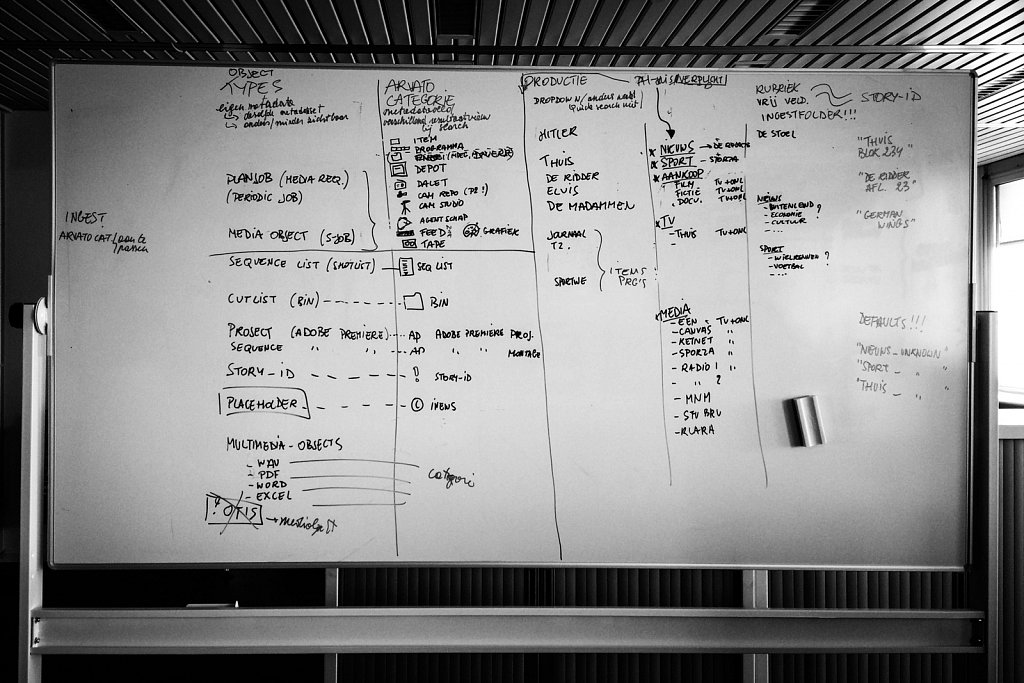 OBJECT
TYPES
eigen metadata
↳ dezelfde metadataset
↳ anders/minder zichtbaar
PLANJOB (MEDIA REQ.)
(PERIODIC JOB)
MEDIA OBJECT (S-JOB)
INGEST!
ARVATO CAT/aan te
passen
SEQUENCE LIST (SHOTLIST)
CUTLIST (BIN)
PROJECT (ADOBE PREMIERE)
SEQUENCE " "
STORY-ID
PLACEHOLDER
MULTIMEDIA-OBJECTS
- WAV
- PDF
- WORD
- EXCEL
! OTIS
ARVATO
CATEGORIE
metadataveld/
verschillend resultaatview
bij search
ITEM
PROGRAMMA
DEPOT
DALET
CAM REPO (P2!)
CAM STUDIO
AGENTSCHAP
FEED GRAFIEK
TAPE
SEQ LIST
BIN
AP ADOBE PREMIERE PROJ.
AP " " MONTAGE
! STORY-ID
iNEWS
PRODUCTIE
DROPDOWN/
HITLER
THUIS
DE RIDDER
ELVIS
DE MADAMMEN
JOURNAAL
TZ.
SPORTWE
ITEMS
PRG'S
* NIEUWS
* SPORT - SPORZA
* AANKOOP
- FILM TV+ONL
FICTIE TV+ONL
- DOCU. TV+ONL
* TV
- THUIS TV+ONL
-
* MEDIA
- EEN - TV+ONL
- CANVAS "
- KETNET "
- SPORZA "
- RADIO 1 "
- " 2
- MNM
- STU BRU
- KLARA
RUBRIEK
VRIJ VELD.
INGESTFOLDER!!!
STORY-ID
DE STOEL
NIEUWS
- BUITENLAND
- ECONOMIE ?
- CULTUUR
- ...
SPORT
- WIELRENNEN ?
- VOETBAL
- ...
"THUIS
BLOK 234"
"DE RIDDER
AFL. 23"
"GERMAN
WINGS"
DEFAULTS!!!
"NIEUWS_UNKNOWN"
"SPORT_ "
"THUIS_ "